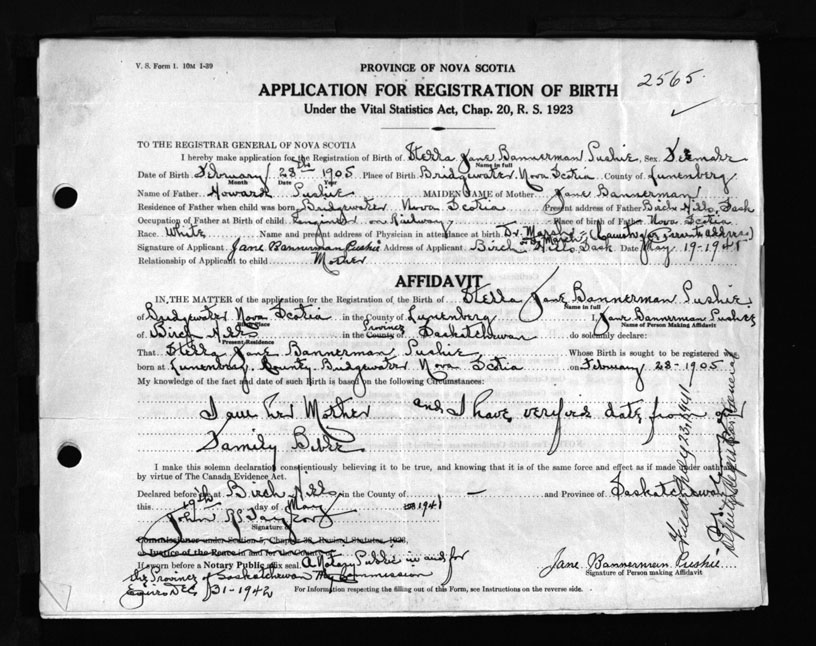 V. S. Form 1. 10M 1-39
PROVINCE OF NOVA SCOTIA
2565
APPLICATION FOR REGISTRATION OF BIRTH
Under the Vital Statistics Act, Chap. 20, R. S. 1923
TO THE REGISTRAR GENERAL OF NOVA SCOTIA
I hereby make application for the Registration of Birth of Stella Jane Bannerman Pushie, Sex. Female
Name in full
Date of Birth February 28th 1905 Place of Birth Bridgewater Nova Scotia County of Lunenberg
Month Date Year
Name of Father Howard Pushie MAIDEN NAME of Mother Jane Bannerman
Residence of Father when child was born Bridgewater Nova Scotia Present address of Father Birch Hills, Sask
Occupation of Father at Birth of child Engineer on Railway Place of birth of Father Nova Scotia
Race White Name and present address of Physician in attendance at birth Dr. Marsh
Signature of Applicant Jane Bannerman Pushie Address of Applicant Birch Hills Sask Date May 19-1941
Relationship of Applicant to child Mother
AFFIDAVIT
IN THE MATTER of the application for the Registration of the Birth of Stella Jane Bannerman Pushie
Name in full
of Bridgewater Nova Scotia in the County of Lunenberg I, Jane Bannerman Pushie
Birth Place Name of Person Making Affidavit
of Birch Hills in the County of Province Saskatchewan do solemnly declare:
Present Residence
That Stella Jane Bannerman Pushie Whose Birth is sought to be registered was
born at Lunenberg County Bridgewater Nova Scotia on February 28-1905
My knowledge of the fact and date of such Birth is based on the following Circumstances:
I am her Mother and I have verified date from our
Family Bible
I make this solemn declaration conscientiously believing it to be true, and knowing that it is of the same force and effect as if made under oath and
by virtue of The Canada Evidence Act.
Declared before me at Birch Hills in the County of — and Province of Saskatchewan
this 19th day of May 1941
John P Taylor
Signature of
Commissioner under Section 5, Chapter 38, Revised Statutes 1923,
a Justice of the Peace in and for the County
If sworn before a Notary Public affix seal. A Notary Public in and for
the Province of Saskatchewan My Commission
Expires Dec 31-1942
Jane Bannerman Pushie
Signature of Person making Affidavit
For Information respecting the filling out of this Form, see Instructions on the reverse side.
Filed May 23, 1941
Deputy Registrar General